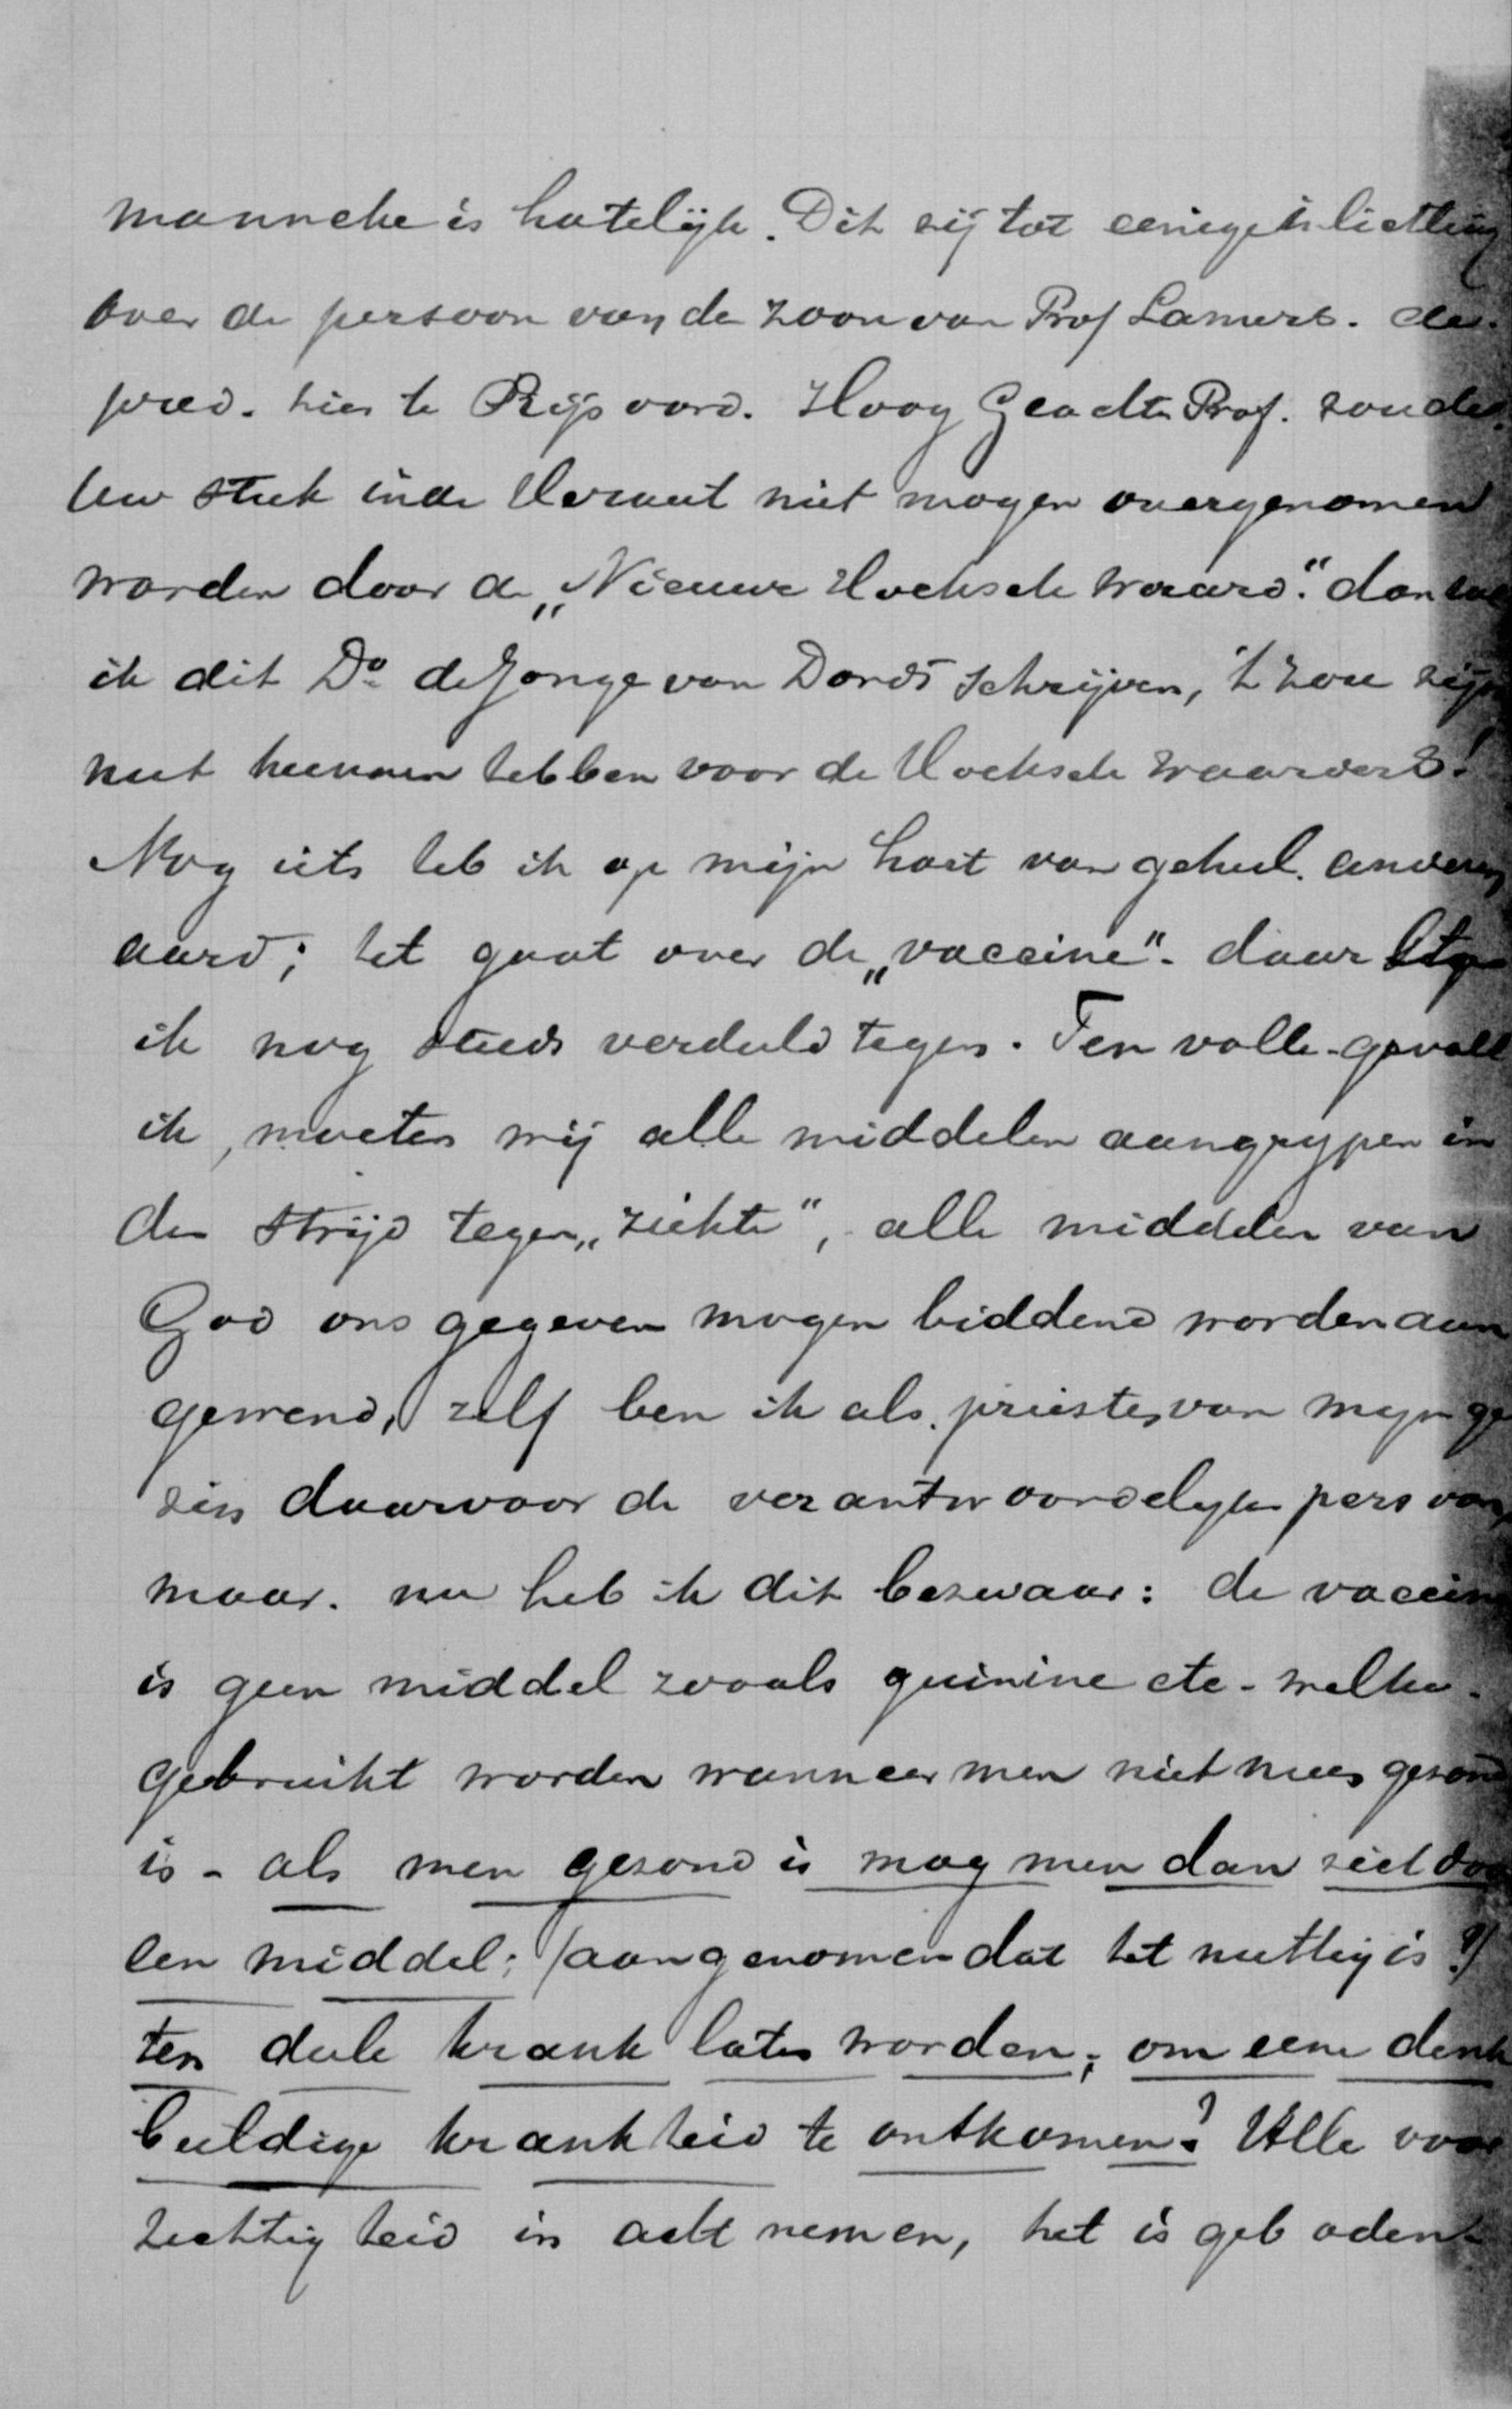 manneke is hatelijk. Dit zij tot eenige inlichting
over de persoon van de zoon van Prof Lamers. de
pred. hier te Rijsoord. Hoog Geachte Prof. zoude
Uw stuk in de Heraut niet mogen overgenomen
worden door de „Nieuwe Hoeksche Waard." dan zal
ik dit Ds de Jonge van Dordt schrijven, 't zou zijn
nut kunnen hebben voor de Hoeksche Waarders!
Nog iets heb ik op mijn hart van geheel anderen
aard; het gaat over de „vaccine". daar
ik nog steeds verdeeld tegen. Ten volle gevoel
ik, moeten wij alle middelen aangrypen in
den strijd tegen „ziekte", alle middelen van
God ons gegeven mogen biddend worden aan
gewend, zelf ben ik als priester van myn ge
zin daarvoor de verantwoordelyke persoon,
maar. nu heb ik dit bezwaar: de vaccin
is geen middel zooals quinine etc. welke
gebruikt worden wanneer men niet meer gezond
is - als men gezond is mag men dan zich door
een middel; (aangenomen dat het nuttig is?)
ten deele krank laten worden; om eene denk
beeldige krankheid te ontkomen? Alle voor
zichtigheid in acht nemen, het is geboden